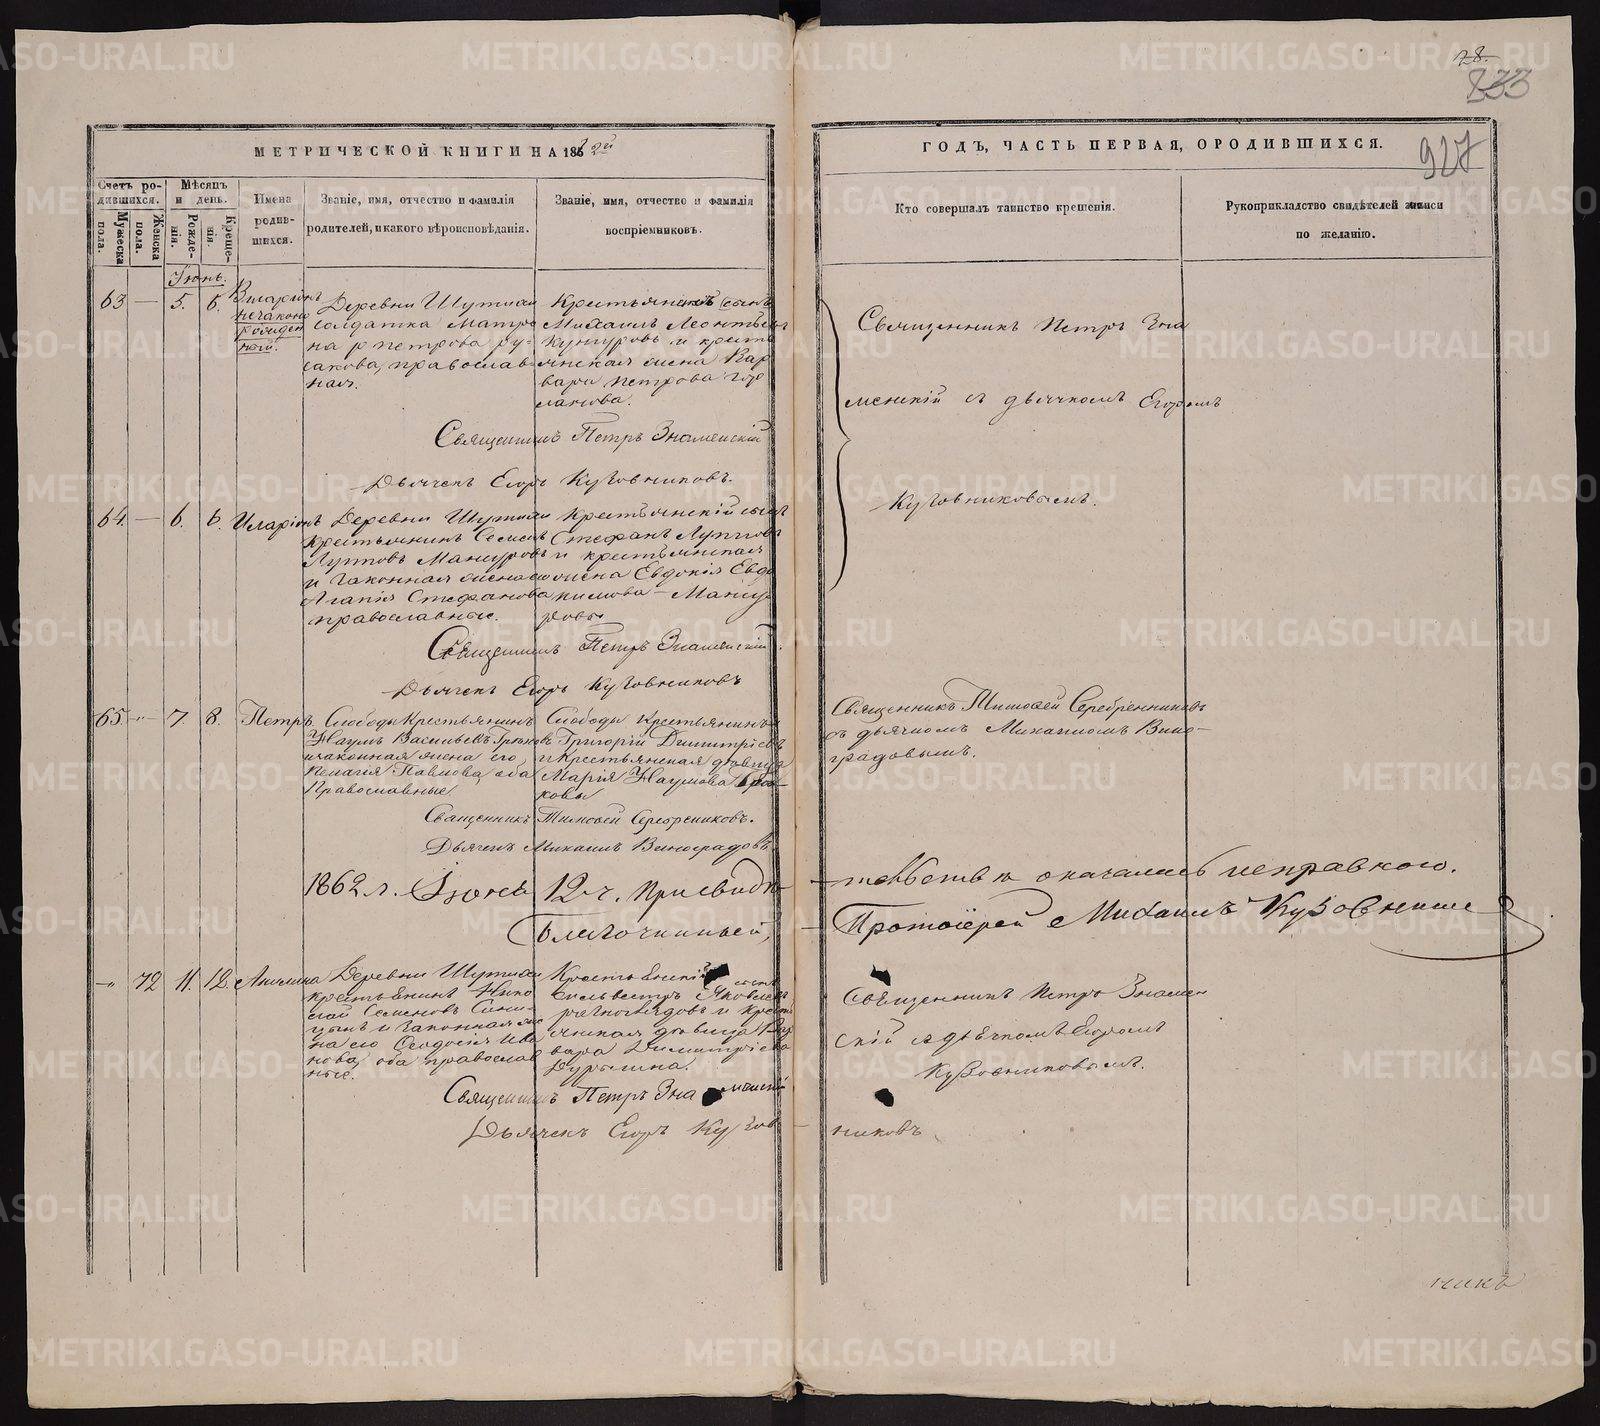 78.
833
927
МЕТРИЧЕСКОЙ КНИГИ НА 1862й
ГОДЪ, ЧАСТЬ ПЕРВАЯ, О РОДИВШИХСЯ.
Счетъ ро-
дившихся.
Мужеска
пола.
Женска
пола.
Мѣсяцъ
и день.
Рожде-
нія.
Креще-
нія.
Имена
родив-
шихся.
Званіе, имя, отчество и фамилія
родителей, и какого вѣроисповѣданія.
Званіе, имя, отчество и фамилія
воспріемниковъ.
Кто совершалъ таинство крещенія.
Рукоприкладство свидѣтелей записи
по желанію.
Іюнь.
63 — 5. 6.
незаконо
рожден
ный.
Деревни
солдатка Матро
на Петрова Ру-
сакова, православ-
ная.
Крестьянскій сынъ
Михаилъ Леонтьевъ
и крестья
янская жена Вар
вара Петрова
Священникъ Петръ Зна
менскій съ дьячкомъ Егоромъ
Кузовниковымъ.
Священникъ Петръ Знаменскій
Дьячекъ Егоръ Кузовниковъ.
64. — 6. 6. Иларіонъ
Деревни
крестьянинъ Семенъ
Лупповъ Мансуровъ
и законная жена его
Агапія Стефанова
православные.
Крестьянскій сынъ
Стефанъ Лупповъ
и крестьянская
жена Евдокія Евдо
кимова — Мансу
ровы
Священникъ Петръ Знаменскій.
Дьячекъ Егоръ Кузовниковъ
65. — 7. 8. Петръ
Слободы Крестьянинъ
Наумъ Васильевъ
и законная жена его
Пелагія Павлова, оба
Православные.
Слободы Крестьянинъ
Григорій Димитріевъ
и Крестьянская дѣвица
Марія Наумова
ковы
Священникъ Тимофей Серебренниковъ
съ дьячкомъ Михаиломъ Вино-
градовымъ.
Священникъ Тимофей Серебрениковъ.
Дьячекъ Михаилъ Виноградовъ
1862 г. Іюня 12 ч. При свидѣ-
тельствѣ оказалась исправною.
Благочинный,
Протоіерей Михаилъ
—„ 72 11. 12. Акилина
Деревни
крестьянинъ Нико
лай Семеновъ Сини-
цынъ и законная же
на его Ѳеодосія Ива
нова, оба православ
ные.
Крестьянскій сынъ
Сильвестръ Яковлевъ
и кресть
янская дѣвица Вар
вара Димитріева
Священникъ Петръ Знамен
скій съ дьячкомъ Егоромъ
Кузовниковымъ.
Священникъ Петръ Знаменскій
Дьячекъ Егоръ Кузов
никовъ
никъ
METRIKI.GASO-URAL.RU